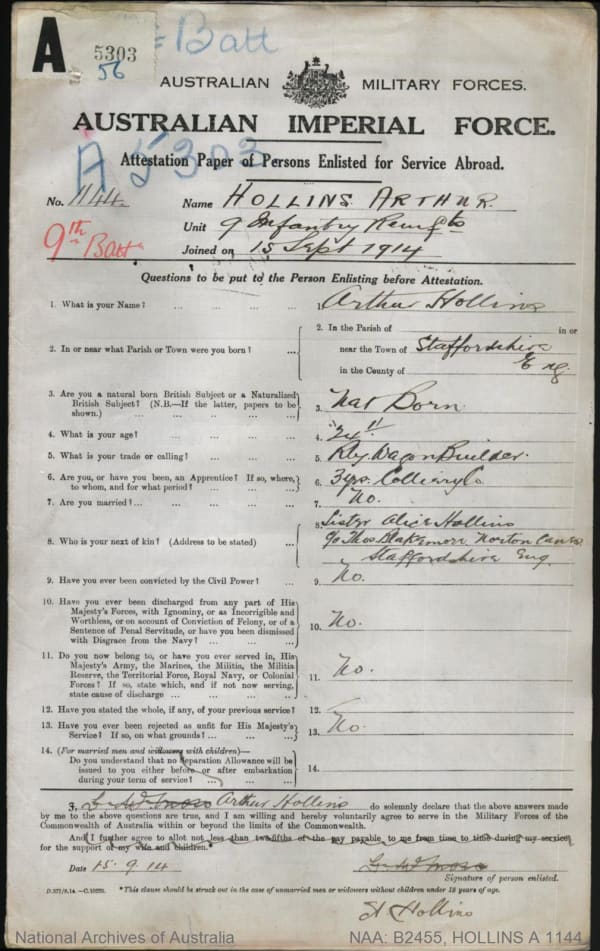 A
5303
56
Batt
AUSTRALIAN MILITARY FORCES.
AUSTRALIAN IMPERIAL FORCE.
A 5303
Attestation Paper of Persons Enlisted for Service Abroad.
No. 1144 Name HOLLINS ARTHUR
9th Batt Unit 9 Infantry Reinfts
Joined on 15 Sept 1914
Questions to be put to the Person Enlisting before Attestation.
1. What is your Name? ... ... ... ... 1. Arthur Hollins
2. In or near what Parish or Town were you born? ... 2. In the Parish of in or
near the Town of Staffordshire
in the County of Eng.
3. Are you a natural born British Subject or a Naturalized
British Subject? (N.B.—If the latter, papers to be
shown.) ... ... ... ... 3. Nat Born
4. What is your age? ... ... ... ... 4. 24
5. What is your trade or calling? ... ... ... 5. Rly. Wagon Builder.
6. Are you, or have you been, an Apprentice? If so, where,
to whom, and for what period? ... ... ... 6. 3 yrs. Colliery Co
7. Are you married? ... ... ... ... 7. No.
8. Who is your next of kin? (Address to be stated) ... 8. Sister Alice Hollins
c/o Thos Blakemore Norton Canes
Staffordshire Eng
9. Have you ever been convicted by the Civil Power? ... 9. No.
10. Have you ever been discharged from any part of His
Majesty's Forces, with Ignominy, or as Incorrigible and
Worthless, or on account of Conviction of Felony, or of a
Sentence of Penal Servitude, or have you been dismissed
with Disgrace from the Navy? ... ... ... 10. No.
11. Do you now belong to, or have you ever served in, His
Majesty's Army, the Marines, the Militia, the Militia
Reserve, the Territorial Force, Royal Navy, or Colonial
Forces? If so, state which, and if not now serving,
state cause of discharge ... ... ... ... 11. No.
12. Have you stated the whole, if any, of your previous service? 12.
13. Have you ever been rejected as unfit for His Majesty's
Service? If so, on what grounds? ... ... ... 13. No
14. (For married men and widowers with children)—
Do you understand that no Separation Allowance will be
issued to you either before or after embarkation
during your term of service? ... ... ... 14.
I, Arthur Hollins do solemnly declare that the above answers made
by me to the above questions are true, and I am willing and hereby voluntarily agree to serve in the Military Forces of the
Commonwealth of Australia within or beyond the limits of the Commonwealth.
And I further agree to allot not less than two-fifths of the pay payable to me from time to time during my service
for the support of my wife and children.*
Date 15.9.14
Signature of person enlisted.
*This clause should be struck out in the case of unmarried men or widowers without children under 18 years of age.
A Hollins
National Archives of Australia NAA: B2455, HOLLINS A 1144